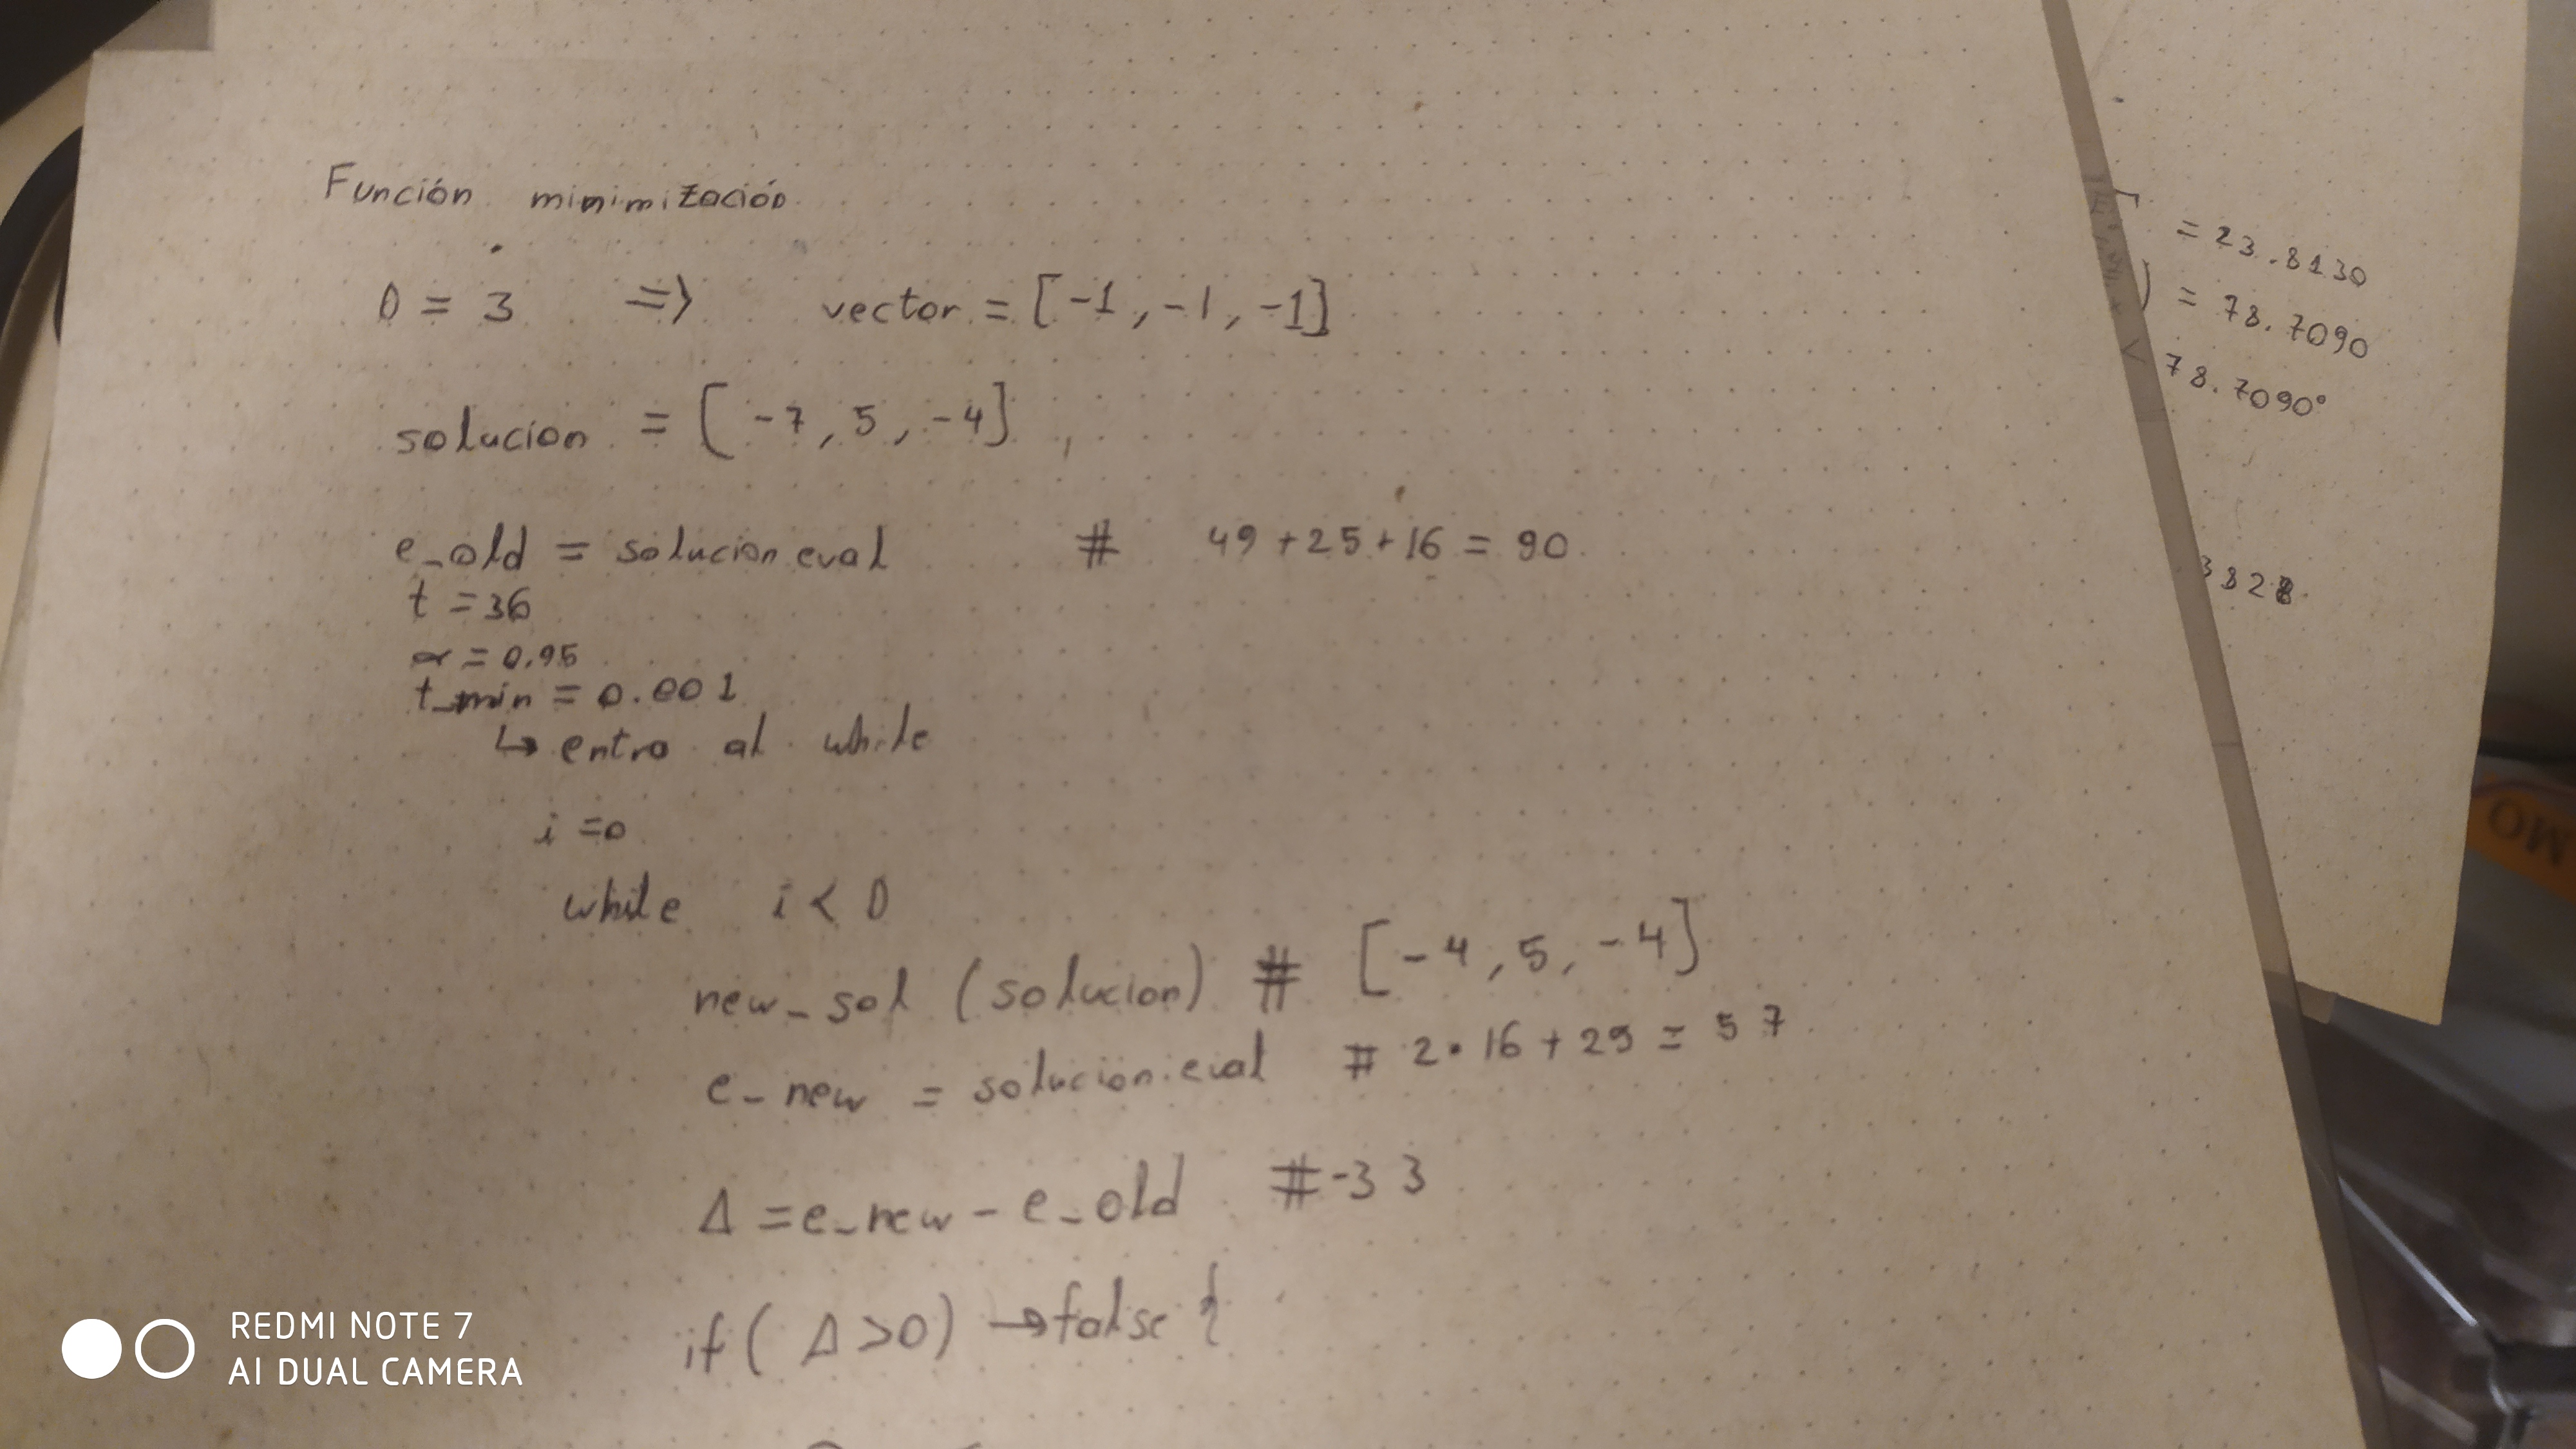 Función minimización
D = 3 => vector = [-1, -1, -1]
solucion = [-7, 5, -4]
e_old = solucion.eval # 49 + 25 + 16 = 90
t = 36
α = 0.95
t_min = 0.001
↳ entro al while
i = 0
while i < D
new_sol (solucion) # [-4, 5, -4]
e_new = solucion.eval # 2 • 16 + 25 = 57
Δ = e_new - e_old # -33
if ( Δ > 0) → false {
= 23.8130
) = 78.7090
78.7090°
3828
OMO
REDMI NOTE 7
AI DUAL CAMERA